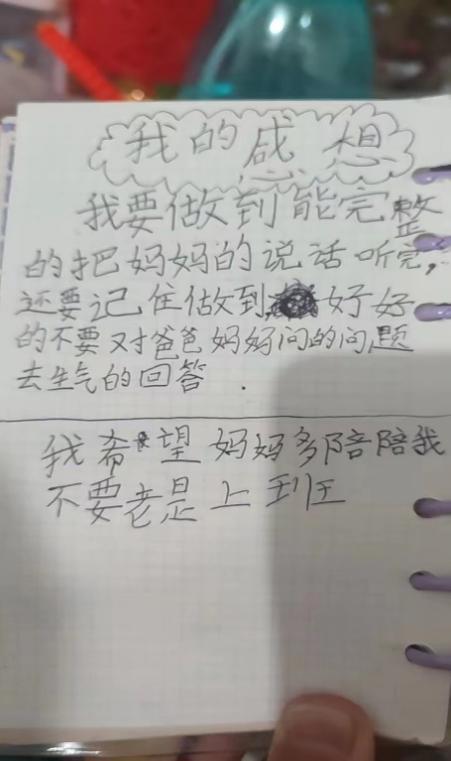 我的感想
我要做到能完整
的把妈妈的说话听完,
还要记住做到好好
的不要对爸爸妈妈问的问题
去生气的回答.
我希望妈妈多陪陪我
不要老是上班